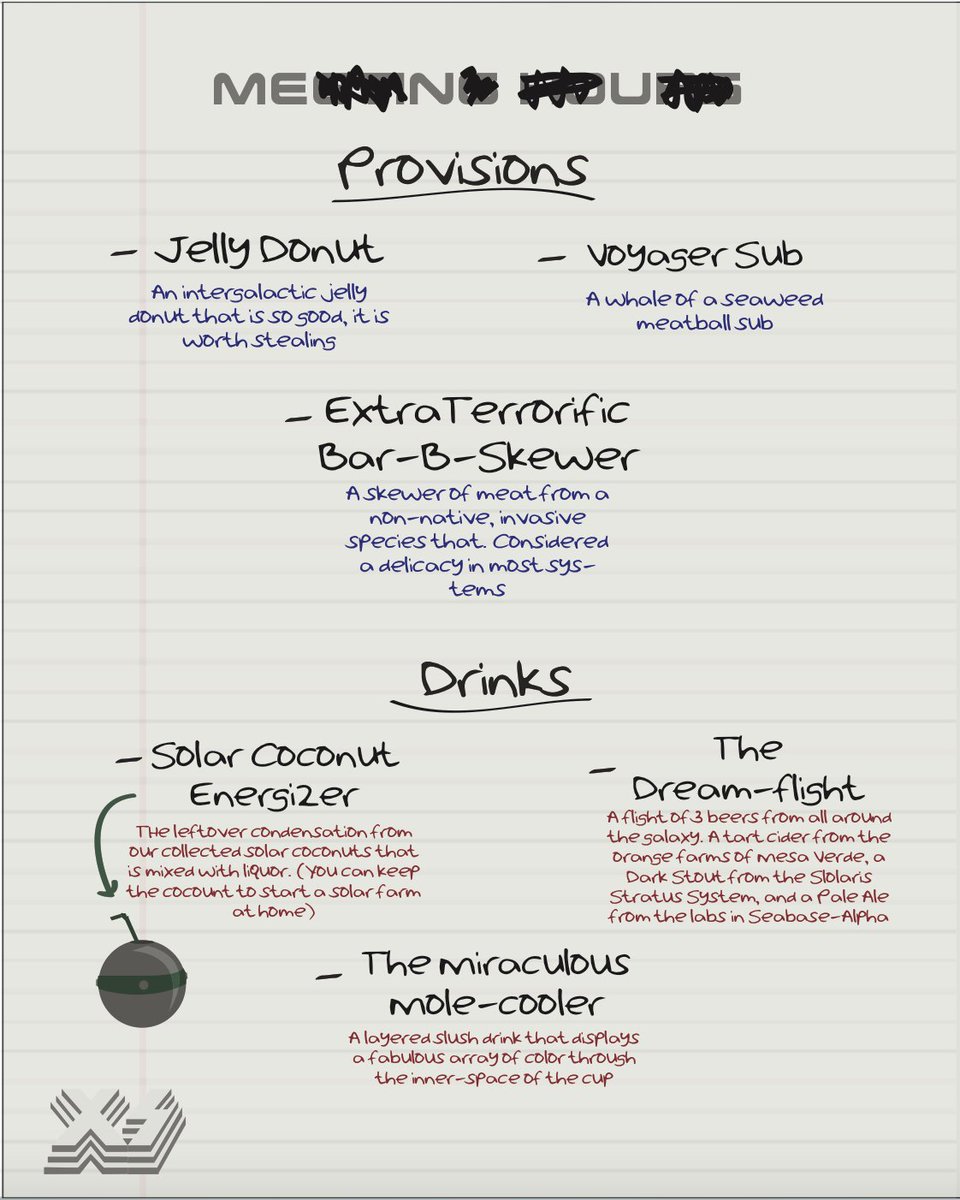 Provisions
- Jelly Donut
An intergalactic jelly
donut that is so good, it is
worth stealing
- Voyager Sub
A whale of a seaweed
meatball sub
- ExtraTerrorific
Bar-B-Skewer
A skewer of meat from a
non-native, invasive
species that. Considered
a delicacy in most sys-
tems
Drinks
- Solar Coconut
Energizer
THe leftover condensation from
our collected solar coconuts that
is mixed with liquor. (You can keep
the cocount to start a solar farm
at home)
- The
Dream-flight
A flight of 3 beers from all around
the galaxy. A tart cider from the
orange farms of Mesa Verde, a
Dark Stout from the Slolaris
Stratus System, and a Pale Ale
from the labs in Seabase-Alpha
- The miraculous
mole-cooler
A layered slush drink that displays
a fabulous array of color through
the inner-space of the cup